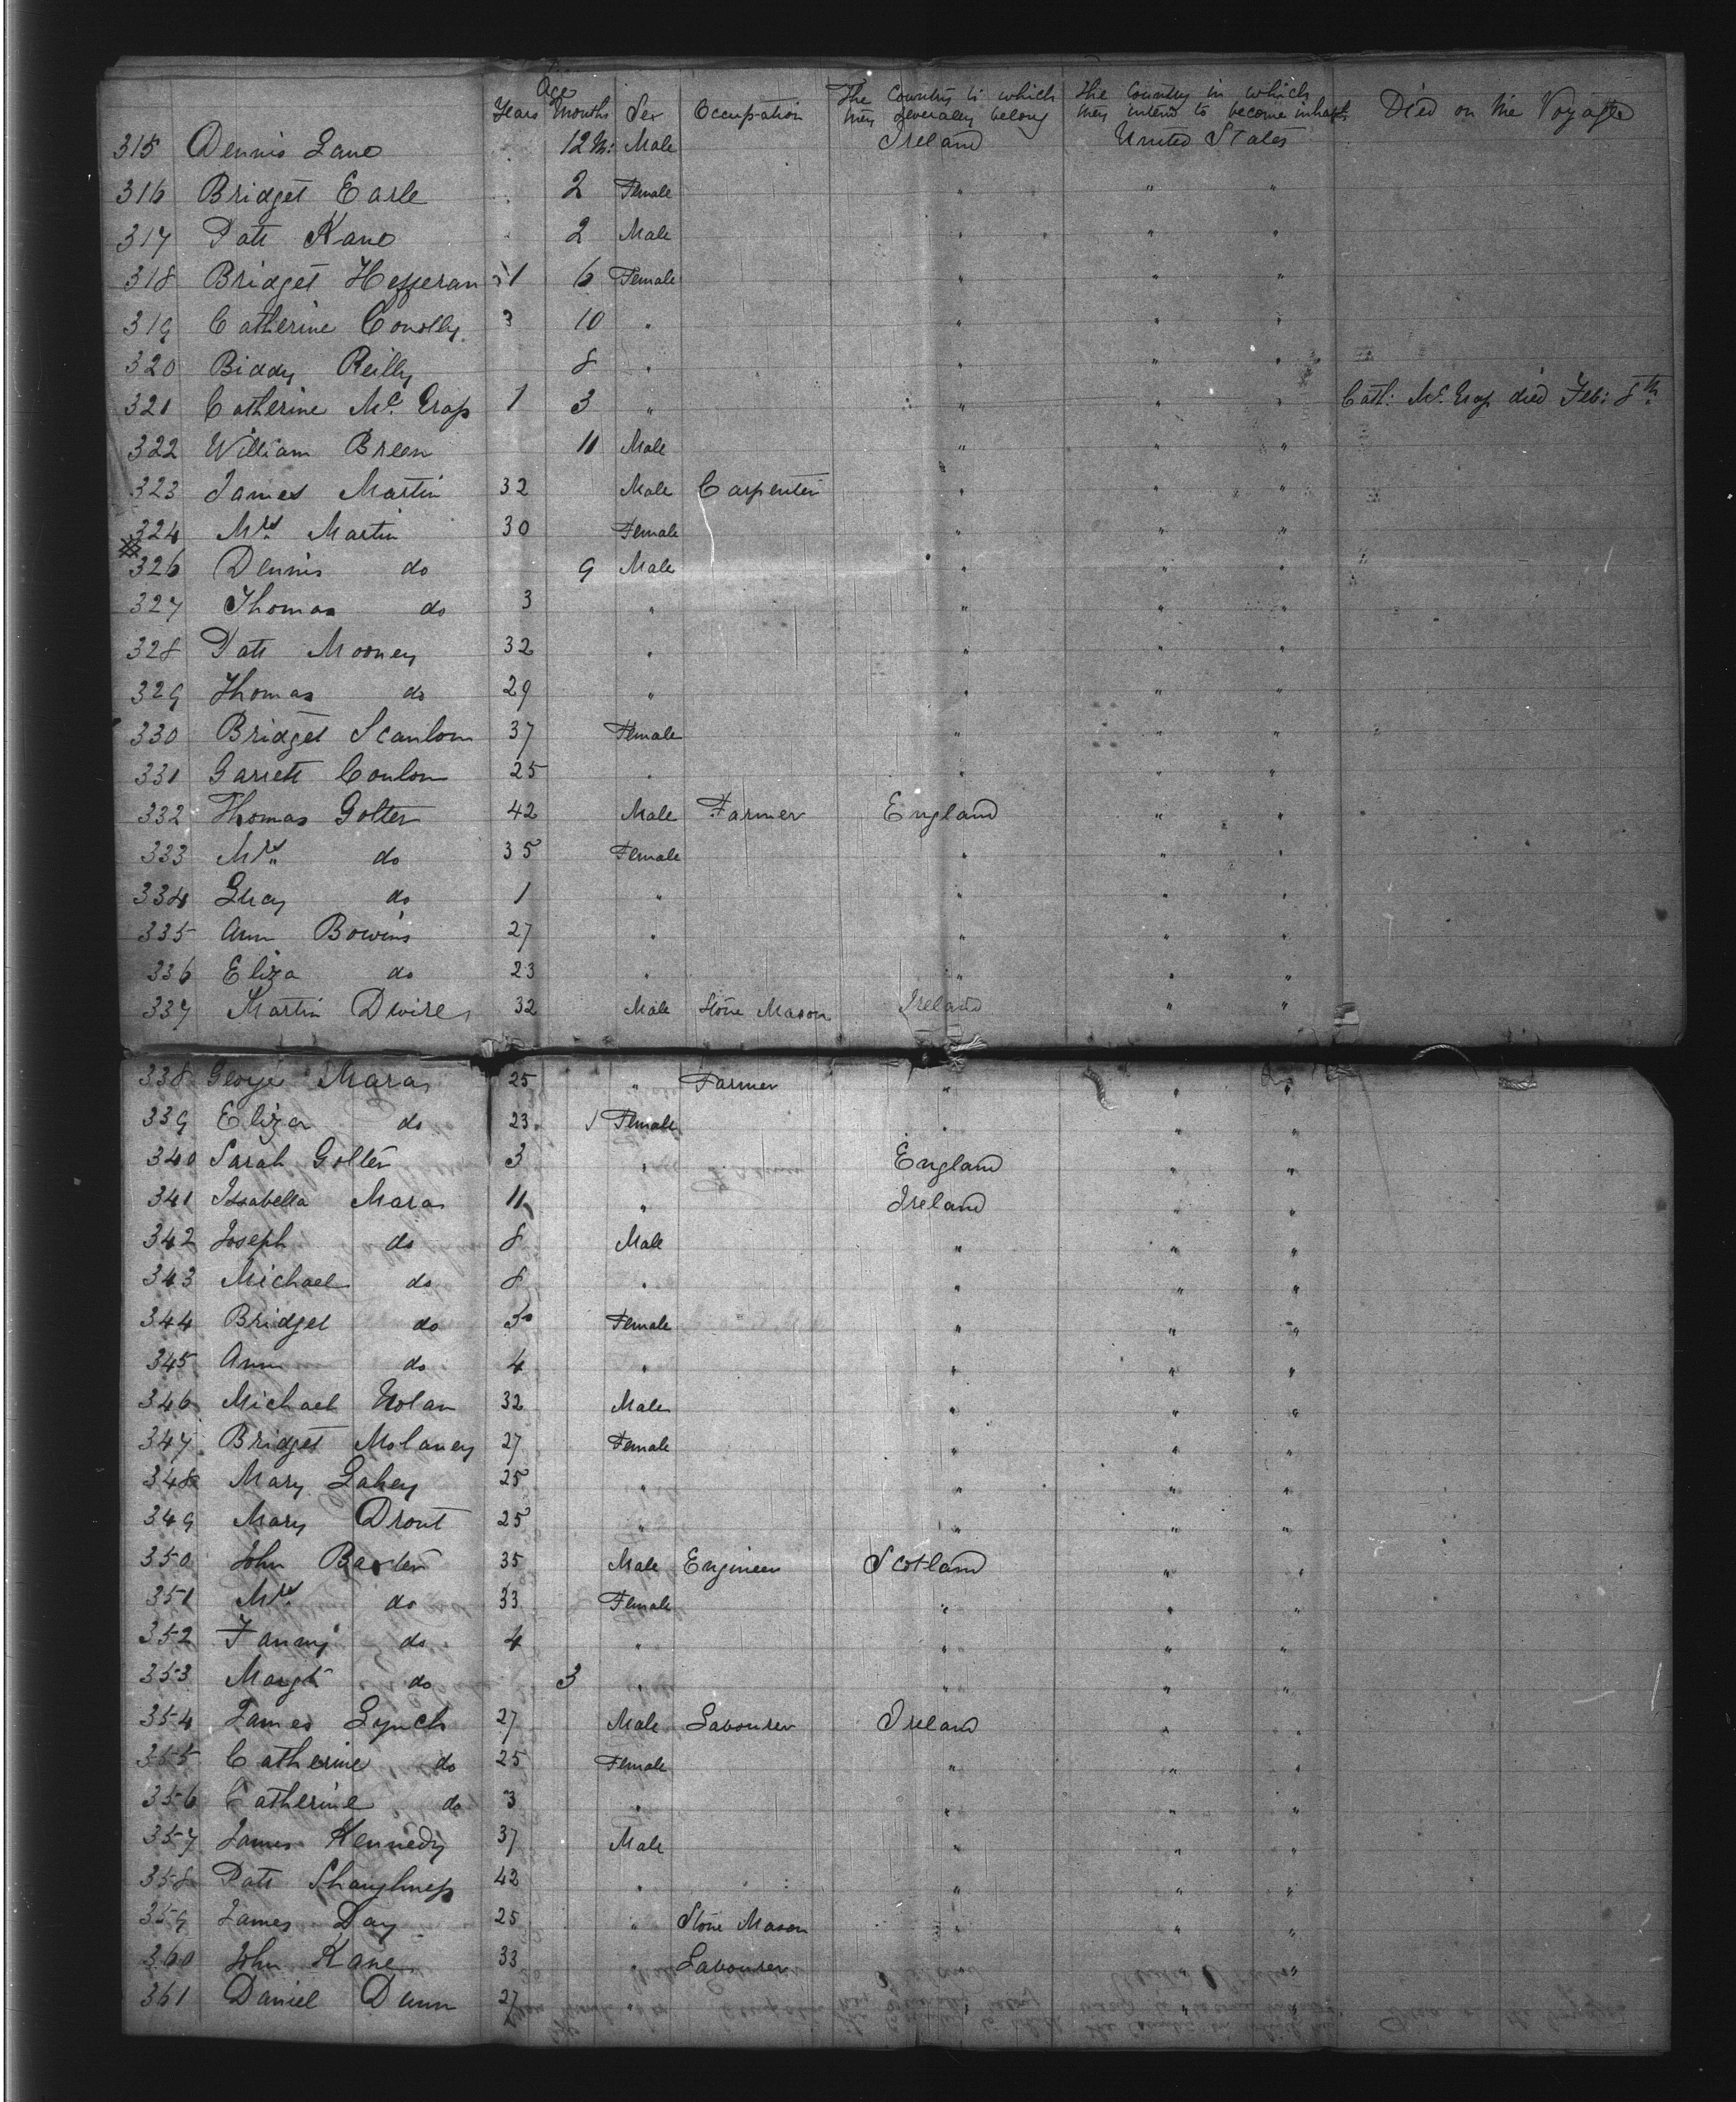 Age
Years Months Sex Occupation The Country to which they severally belong The Country in which they intend to become inhabts. Died on the Voyage
315 Dennis Lane 12 M: Male Ireland United States
316 Bridget Earle 2 Female " " "
317 Patt Kane 2 Male " " "
318 Bridget Hefferan 1 6 Female " " "
319 Catherine Conolly 3 10 " " " "
320 Biddy Reilly 8 " " " "
321 Catherine Mc. Grap 1 3 " " " " Cath: Mc. Grap died Feb: 8th.
322 William Breen 11 Male " " "
323 James Martin 32 Male Carpenter " " "
324 Mrs. Martin 30 Female " " "
326 Dennis do 9 Male " " "
327 Thomas do 3 " " " "
328 Patt Mooney 32 " " " "
329 Thomas do 29 " " " "
330 Bridget Scanlon 37 Female " " "
331 Garrett Conlon 25 " " " "
332 Thomas Golter 42 Male Farmer England " "
333 Mrs. do 35 Female " " "
334 Lucy do 1 " " " "
335 Ann Bowins 27 " " " "
336 Eliza do 23 " " " "
337 Martin Dwire 32 Male Stone Mason Ireland " "
338 George Mara 25 " Farmer " " "
339 Eliza do 23 Female " " "
340 Sarah Golter 3 " England " "
341 Issabella Mara 11 " Ireland " "
342 Joseph do 8 Male " " "
343 Michael do 8 " " " "
344 Bridget do 5 Female " " "
345 Ann do 4 " " " "
346 Michael Nolan 32 Male " " "
347 Bridget Molaney 27 Female " " "
348 Mary Lahey 25 " " " "
349 Mary Drout 25 " " " "
350 John Baxter 35 Male Engineer Scotland " "
351 Mrs. do 33 Female " " "
352 Fanny do 4 " " " "
353 Margt. do 3 " " " "
354 James Lynch 27 Male Labourer Ireland " "
355 Catherine do 25 Female " " "
356 Catherine do 3 " " " "
357 James Kennedy 37 Male " " "
358 Patt Shaughnesp 42 " " " "
359 James Day 25 " Stone Mason " " "
360 John Kane 33 " Labourer " "
361 Daniel Dunn 27 " " " "